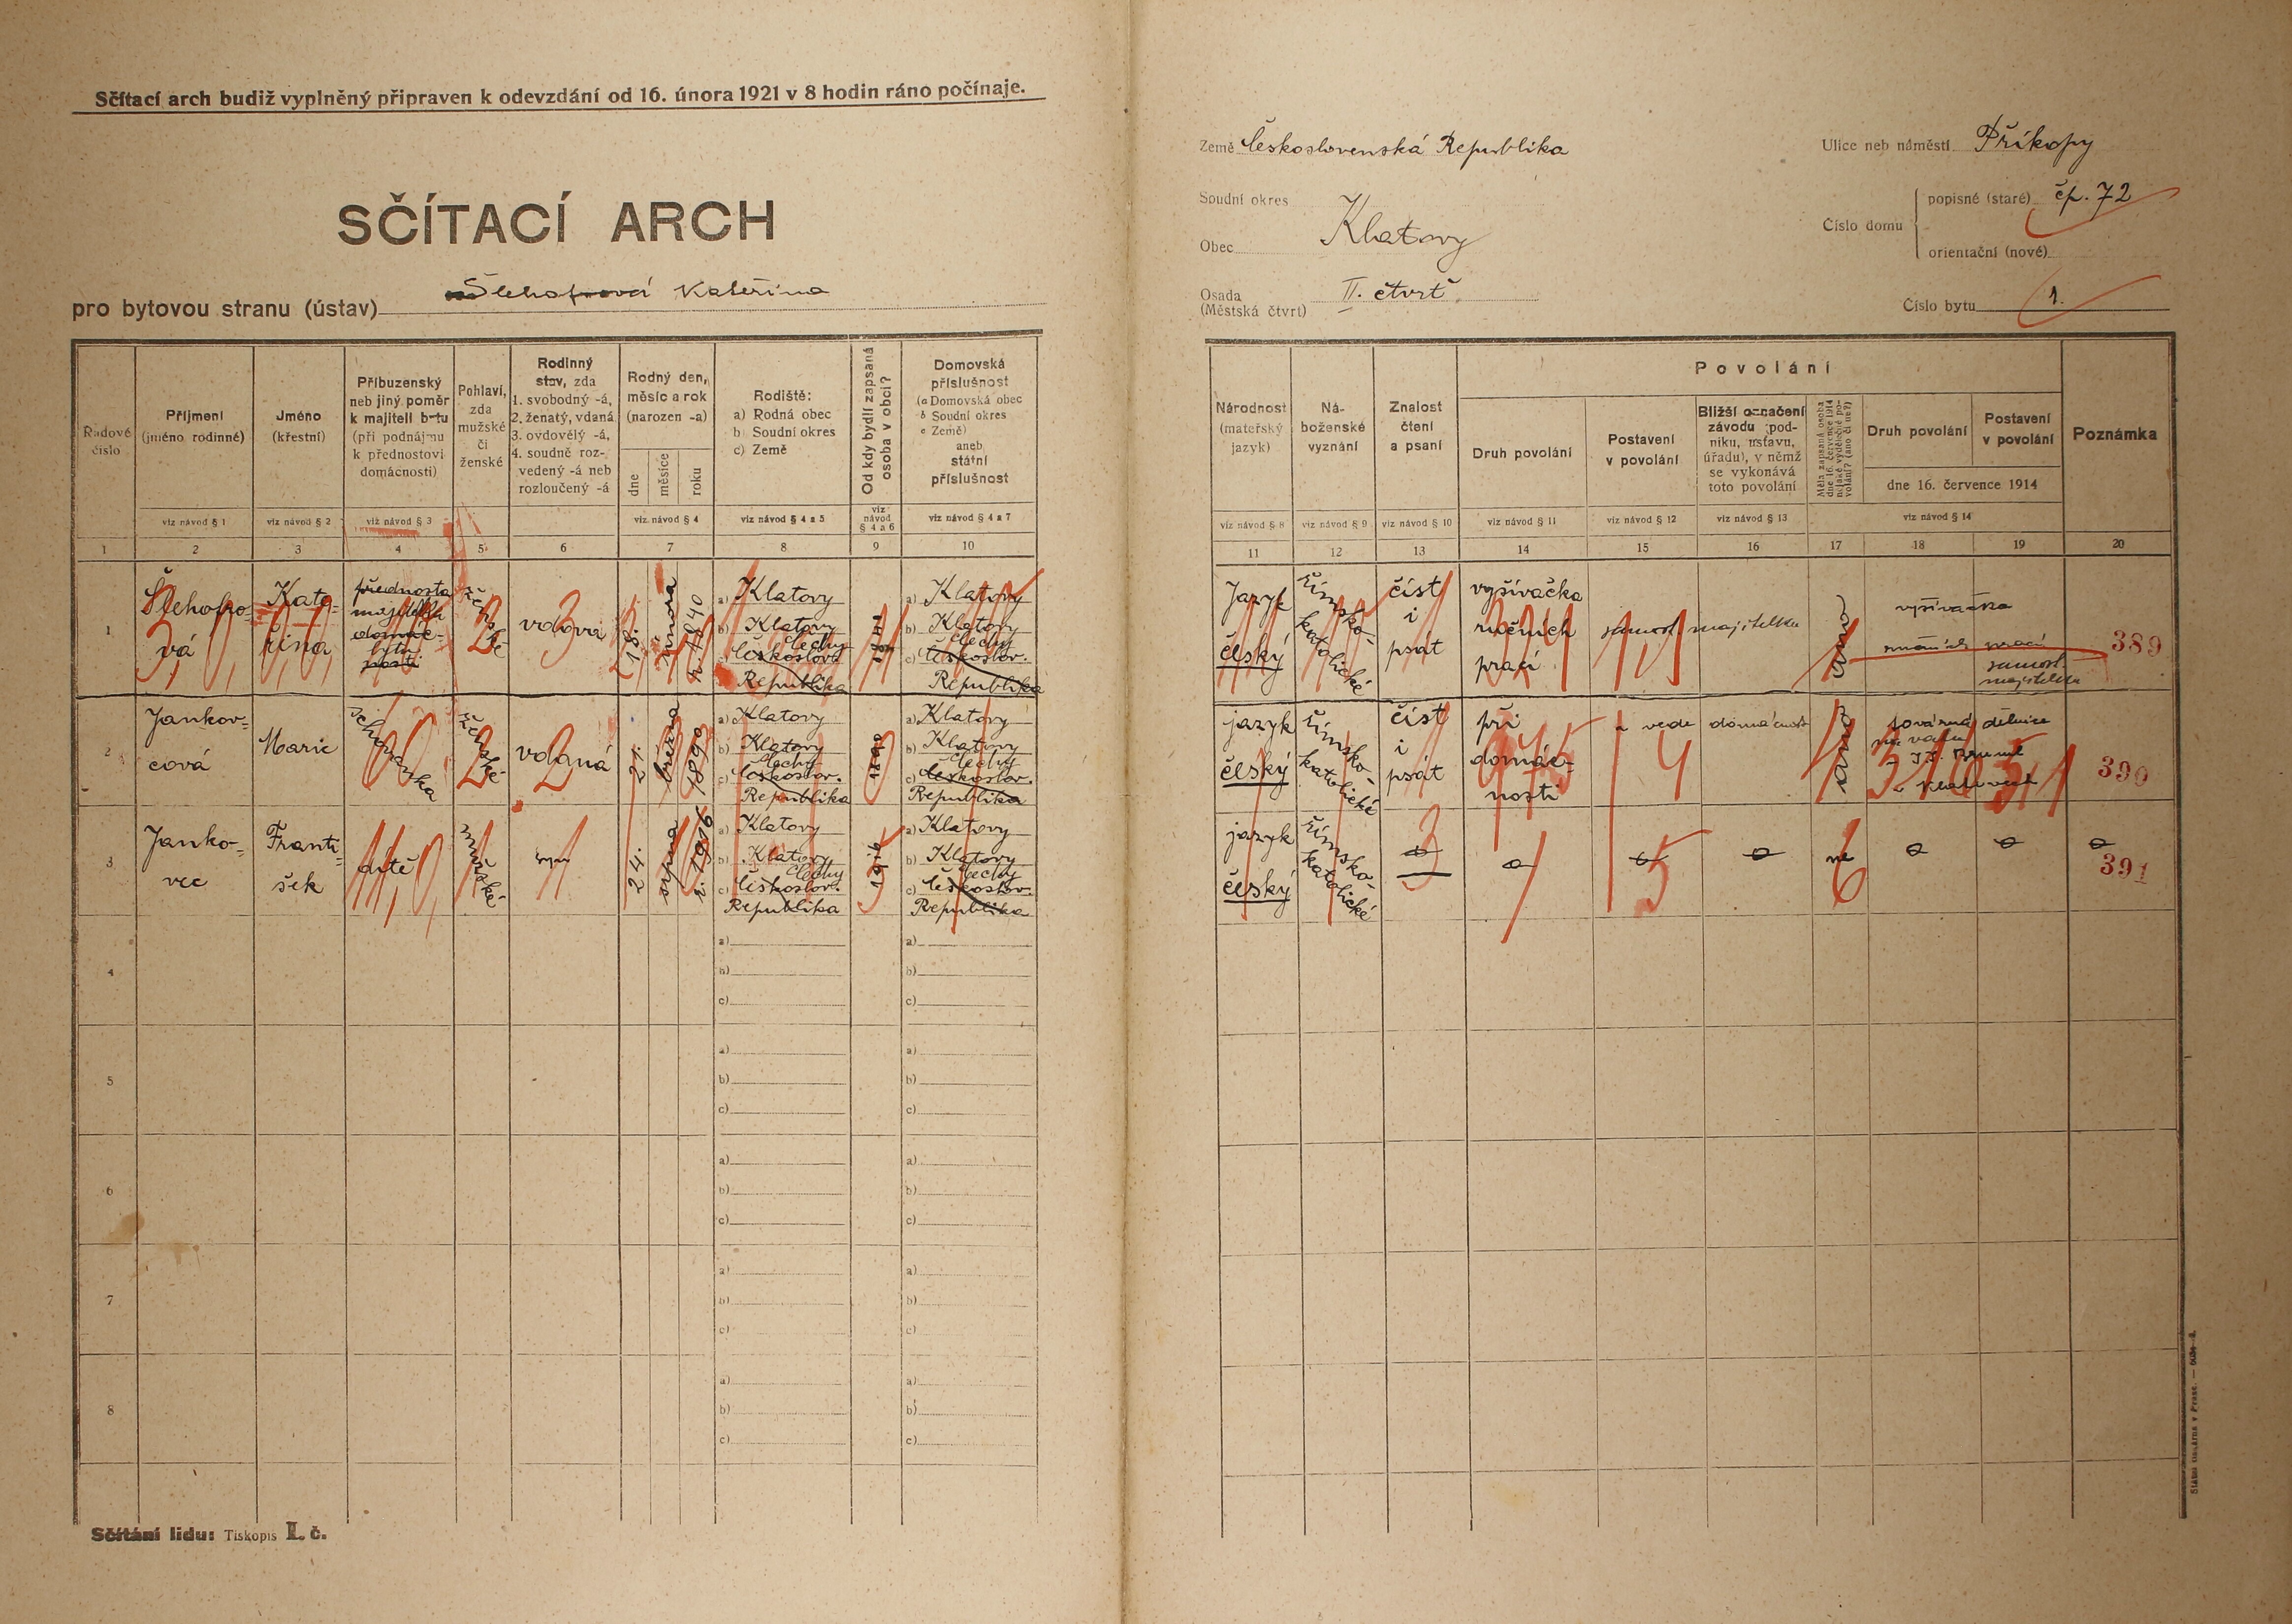 Sčítací arch budiž vyplněný připraven k odevzdání od 16. února 1921 v 8 hodin ráno počínaje.
SČÍTACÍ ARCH
pro bytovou stranu (ústav) Šlehofrová Kateřina
Země Československá Republika
Soudní okres
Obec Klatovy
Osada
(Městská čtvrt) II. čtvrť
Ulice neb náměstí Příkopy
Číslo domu
popisné (staré) čp. 72
orientační (nové)
Číslo bytu 1.
Řadové číslo
Příjmení (jméno rodinné)
Jméno (křestní)
Příbuzenský neb jiný poměr k majiteli bytu (při podnájmu k přednostovi domácnosti)
Pohlaví, zda mužské či ženské
Rodinný stav, zda
1. svobodný -á,
2. ženatý, vdaná
3. ovdovělý -á,
4. soudně rozvedený -á neb rozloučený -á
Rodný den, měsíc a rok (narozen -a)
dne
měsíce
roku
Rodiště:
a) Rodná obec
b) Soudní okres
c) Země
Od kdy bydlí zapsaná osoba v obci?
Domovská příslušnost
(a Domovská obec
b Soudní okres
c Země)
aneb státní příslušnost
viz návod § 1
viz návod § 2
viz návod § 3
viz návod § 4
viz návod § 4 a 5
viz návod § 4 a 6
viz návod § 4 a 7
1 2 3 4 5 6 7 8 9 10
Národnost (mateřský jazyk)
Náboženské vyznání
Znalost čtení a psaní
Povolání
Druh povolání
Postavení v povolání
Bližší označení závodu (podniku, ústavu, úřadu), v němž se vykonává toto povolání
Měla zapsaná osoba dne 16. července 1914 nějaké výdělečné povolání? (ano či ne?)
Druh povolání
Postavení v povolání
dne 16. července 1914
Poznámka
viz návod § 8
viz návod § 9
viz návod § 10
viz návod § 11
viz návod § 12
viz návod § 13
viz návod § 14
11 12 13 14 15 16 17 18 19 20
1
Kateřina
přednosta
majitelka
domác-
bytu
nosti
ženské
vdova
3
18.
února
r. 1840
a) Klatovy
b) Klatovy
Čechy
c) Českoslov.
Republika
a) Klatovy
b) Klatovy
Čechy
c) Českoslov.
Republika
Jazyk
český
římsko-
katolické
číst
i
psát
vyšívačka
ručních
prací
samost. majitelka
ano
vyšívačka
ručních prací
samost.
majitelka
389
2
Jankov-
cová
Marie
schovanka
ženské
vdaná
21.
března
1890
a) Klatovy
b) Klatovy
Čechy
c) Českoslov.
Republika
1890
a) Klatovy
b) Klatovy
Čechy
c) Českoslov.
Republika
jazyk
český
římsko-
katolické
číst
i
psát
při
domác-
nosti
vede domácnost
ano
dělnice
390
3
Janko-
vec
Franti-
šek
dítě
mužské
24.
srpna
r. 1916
a) Klatovy
b) Klatovy
Čechy
c) Českoslov.
Republika
1916
a) Klatovy
b) Klatovy
Čechy
c) Českoslov.
Republika
jazyk
český
římsko-
katolické
ne
391
4
a)
b)
c)
a)
b)
c)
5
a)
b)
c)
a)
b)
c)
6
a)
b)
c)
a)
b)
c)
7
a)
b)
c)
a)
b)
c)
8
a)
b)
c)
a)
b)
c)
Sčítání lidu: Tiskopis I. č.
Státní tiskárna v Praze.